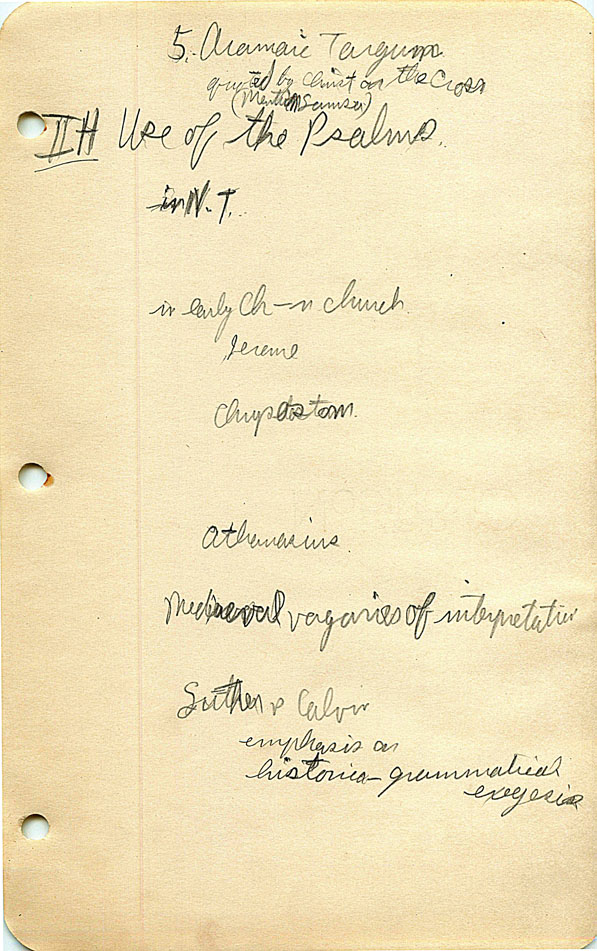 5. Aramaic Targum
quoted by Christ on the Cross
(
II H Use of the Psalms.
in N.T.
in early Ch-n church
Jerome
Chrysostom.
Athanasius.
Mediaeval vagaries of interpretation
Luther & Calvin
emphasis on
historico-grammatical
exegesis